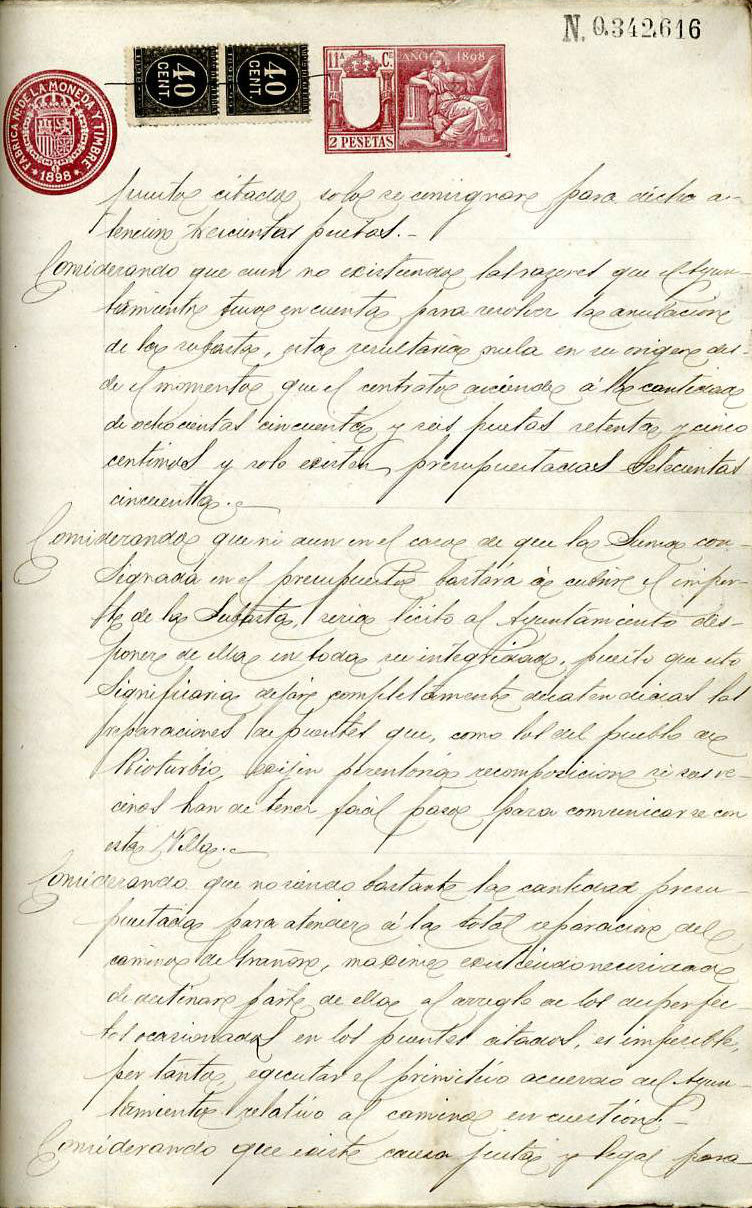 N. 0.342,616
40 CENT.
40 CENT.
11ª Cᴱ
AÑO 1898
2 PESETAS
FABRICA Nal DE LA MONEDA Y TIMBRE
* 1898 *
puentes citados, solo se consignare para dicha a-
tencion trescientas pesetas.-
Considerando que aun no existiendo las razones que el Ayun-
tamiento tuvo en cuenta para resolver la anulacion
de la subasta, esta resultaria nula en su origen des-
de el momento que el contrato asciende á la cantidad
de ochocientas cincuenta y seis pesetas setenta y cinco
centimos y solo existen presupuestadas Setecientas
cincuenta.-
Considerando que ni aun en el caso de que la Suma con-
signada en el presupuesto bastará á cubrir el impor-
te de la Subasta, seria licito al Ayuntamiento dis-
poner de ella en toda su integridad, puesto que esto
significaria dejar completamente desatendidas las
reparaciones de puentes que, como los del pueblo de
Rioturbio, exijen perentoria recomposicion si sus ve-
cinos han de tener facil paso para comunicarse con
esta Villa.-
Considerando que no siendo bastante la cantidad presu-
puestada para atender á la total reparacion del
camino de Grañon, maxime existiendo necesidad
de destinar parte de ella al arreglo de los desperfec-
tos ocasionados en los puentes citados, es imposible,
por tanto, egecutar el primitivo acuerdo del Ayun-
tamiento relativo al camino en cuestion.-
Considerando que existe causa justa y legal para